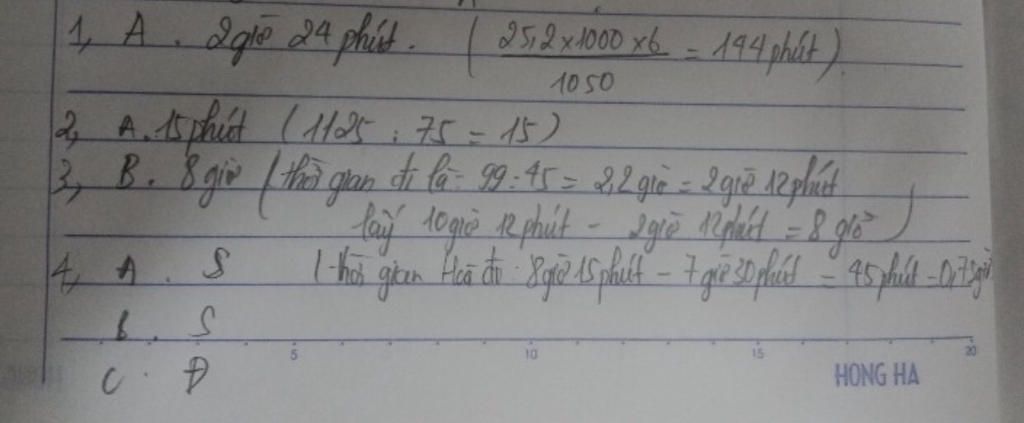 1, A. 2giờ 24 phút. ( 25,2x1000x6 / 1050 = 144 phút)
2, A. 15 phút ( 1125 : 75 = 15 )
3, B. 8 giờ ( thời gian đi là: 99 : 45 = 2,2 giờ = 2 giờ 12 phút
lấy 10 giờ 12 phút - 2 giờ 12 phút = 8 giờ )
4, A. S ( thời gian Hoà đi: 8 giờ 15 phút - 7 giờ 30 phút = 45 phút = 0,75 giờ
B. S
5 10 15 20
C. Đ
HONG HA